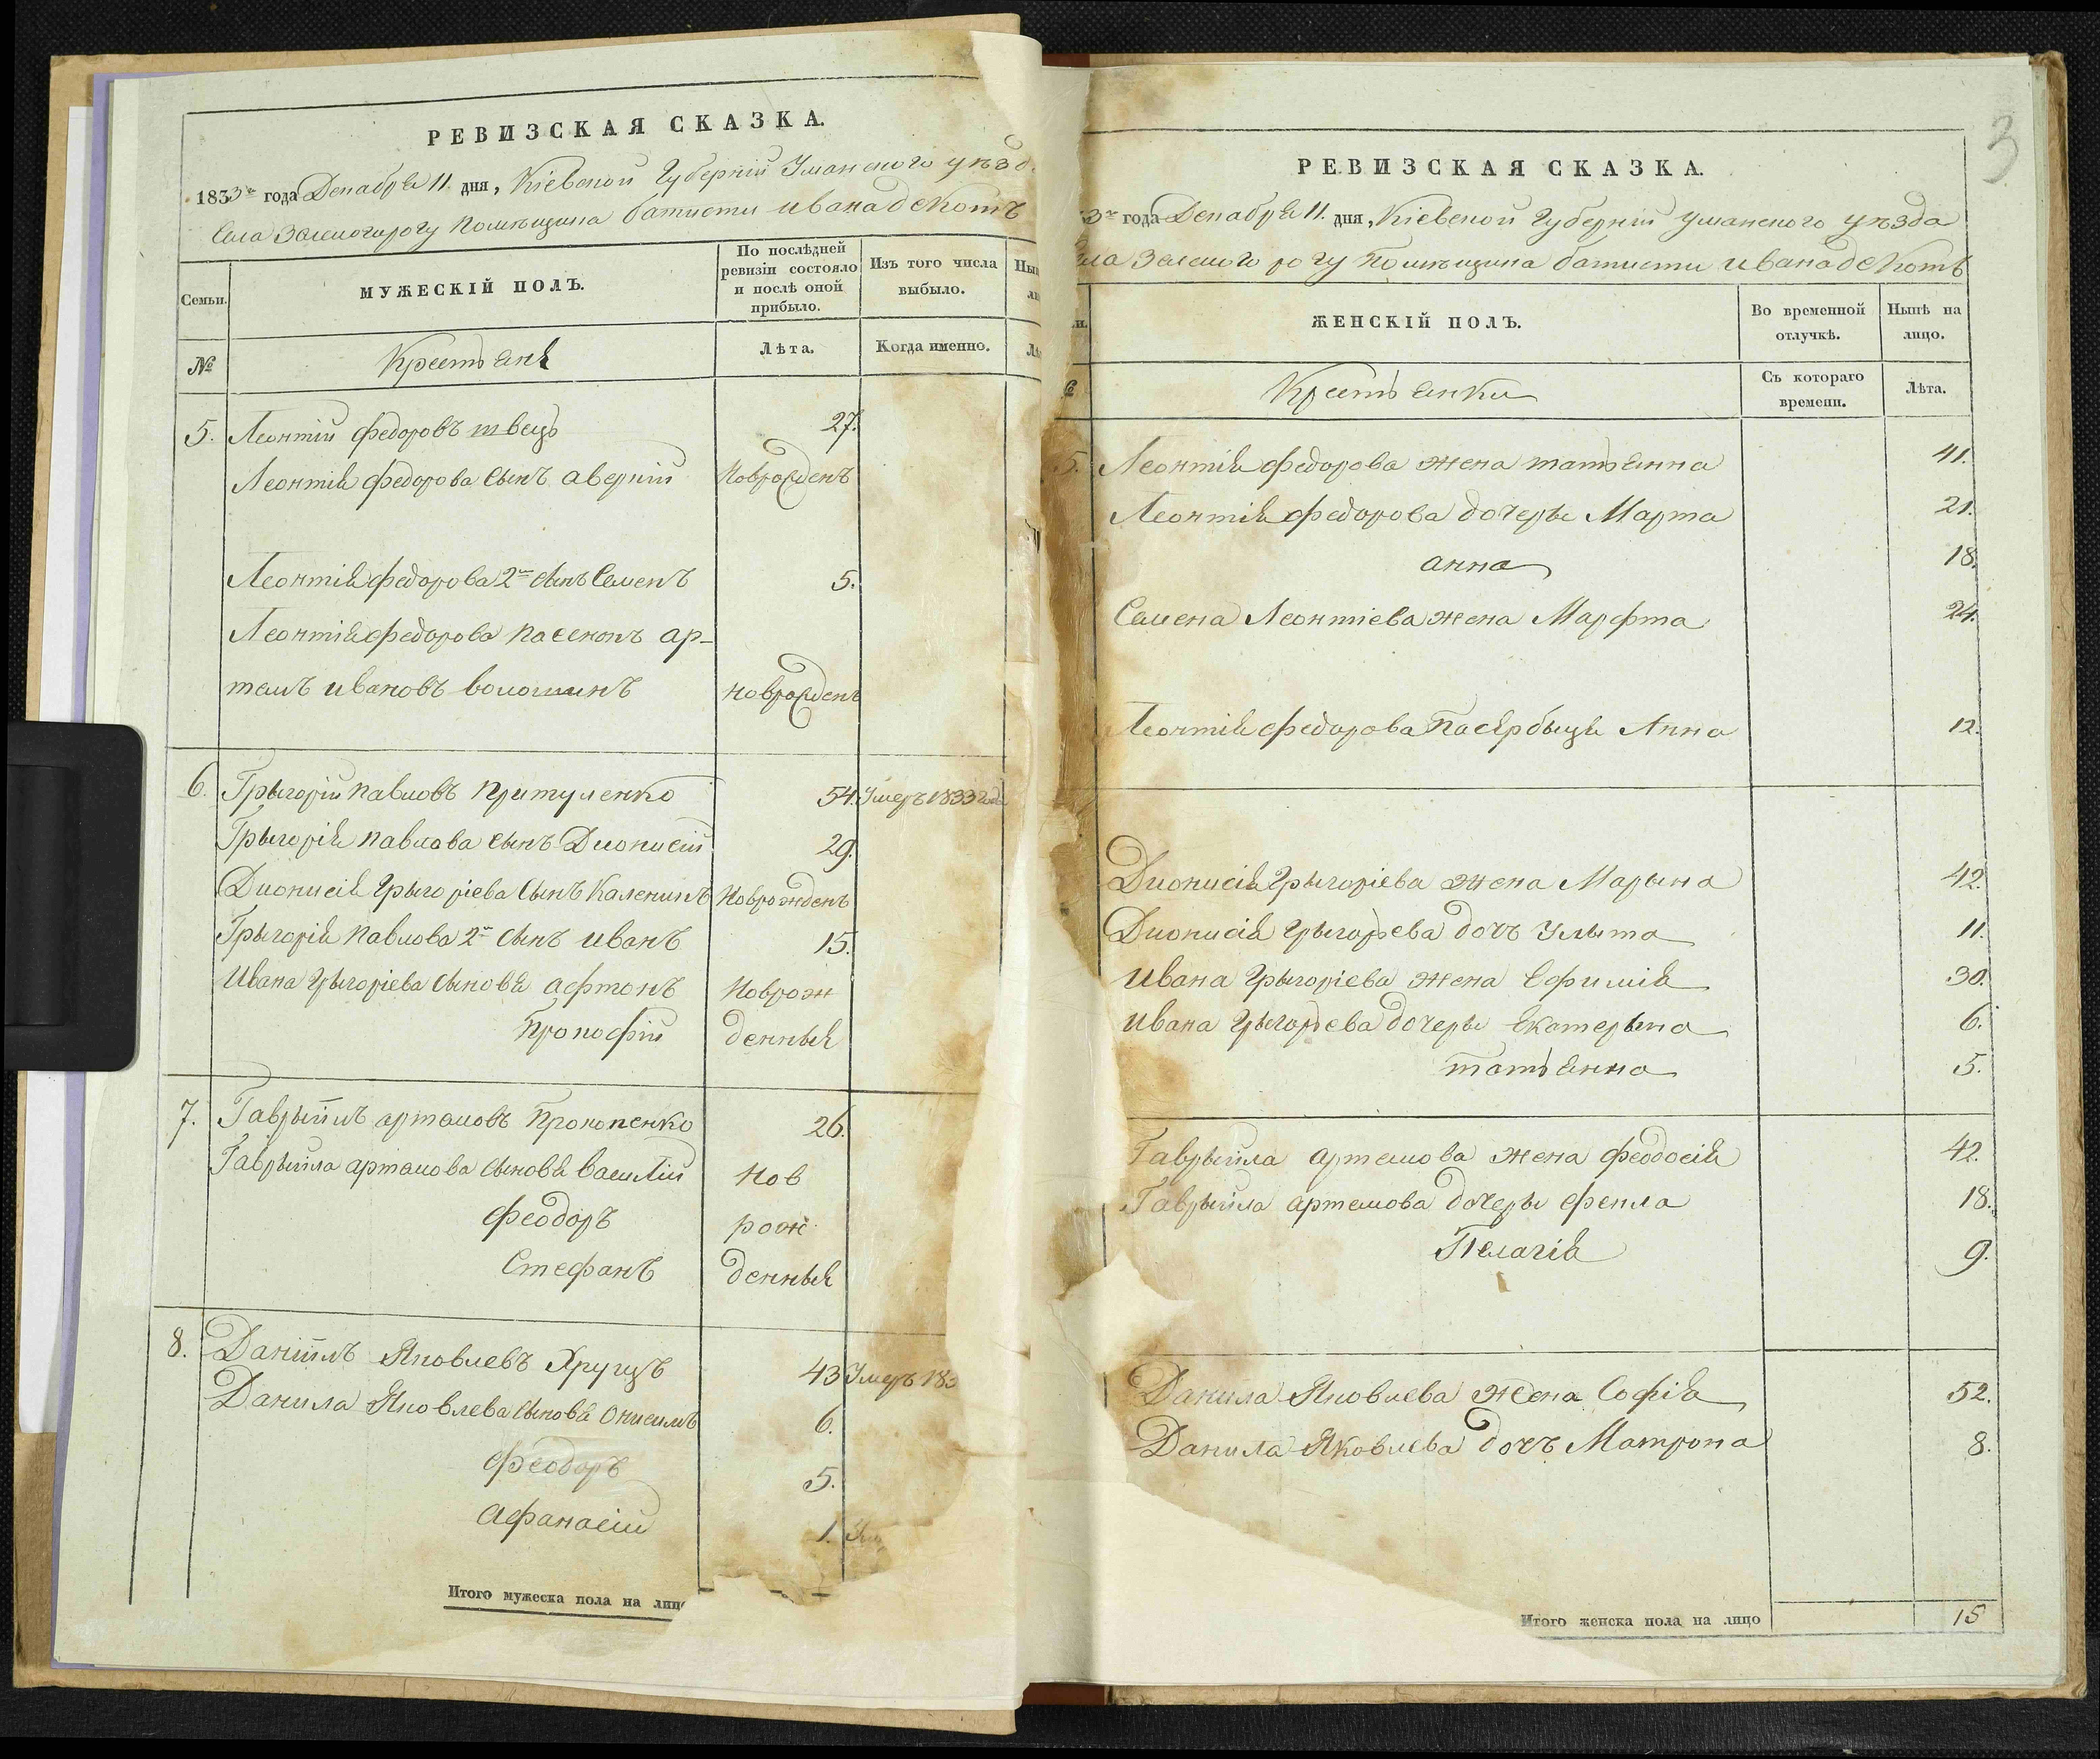 РЕВИЗСКАЯ СКАЗКА.
1833го года Декабря 11. дня, Кіевской Губерніи Уманского уѣзд
Села Зеленогорогу Помѣщика батисти ивана деКотъ
Семьи.
МУЖЕСКІЙ ПОЛЪ.
По послѣдней ревизіи состояло и послѣ оной прибыло.
Изъ того числа выбыло.
№
Крестьянѣ
Лѣта.
Когда именно.
5. Леонтій федоровъ швецъ 27.
Леонтія федорова сынъ аверкій Новрожденъ
Леонтія федорова 2й сынъ Семенъ 5.
Леонтія федорова пасенокъ ар-
темъ ивановъ волошинъ новрожденъ
6. Грыгорій павловъ Притуленко 54. Умеръ 1833 года
Грыгорія павлова сынъ Дионисій 29.
Дионисія Грыгоріева сынъ Каленикъ Новрожденъ
Грыгорія Павлова 2й сынъ иванъ 15.
Ивана Грыгоріева сыновя афтонъ Новрож
Прокофій денныя
7. Гаврыіилъ артемовъ Прокопенко 26.
Гаврыіила артемова сыновя василій Нов
феодоръ рож
Стефанъ денныя
8. Даніилъ Яковлевъ Хруцъ 43 Умеръ 183
Данила Яковлева сыновя Онисимъ 6.
феодоръ 5.
афанасій 1.
Итого мужеска пола на лиц
3
РЕВИЗСКАЯ СКАЗКА.
3го года Декабря 11. дня, Кіевской Губерніи уманского уѣзда
ла Зеленого рогу Помѣщика батисти ивана деКотъ
ЖЕНСКІЙ ПОЛЪ.
Во временной отлучкѣ.
Нынѣ на лицо.
Крестьянки
Съ котораго времени.
Лѣта.
5. Леонтія федорова жена татьянна 41.
Леонтія федорова дочеры Марта 21.
анна 18.
Семена Леонтіева жена Марфта 24.
Леонтія федорова Пасярбыця Анна 12.
Дионисія Грыгоріева жена Марына 42.
Дионисія Грыгорьева дочъ Улыта 11.
Ивана Грыгоріева жена Ефимія 30.
Ивана Грыгорьева дочеры Екатерына 6.
татьянна 5.
Гаврыіила артемова жена феодосія 42.
Гаврыіила артемова дочеры фекла 18.
Пелагія 9.
Данила Яковлева жена Софія 52.
Данила Яковлева дочъ Матрона 8.
Итого женска пола на лицо 15